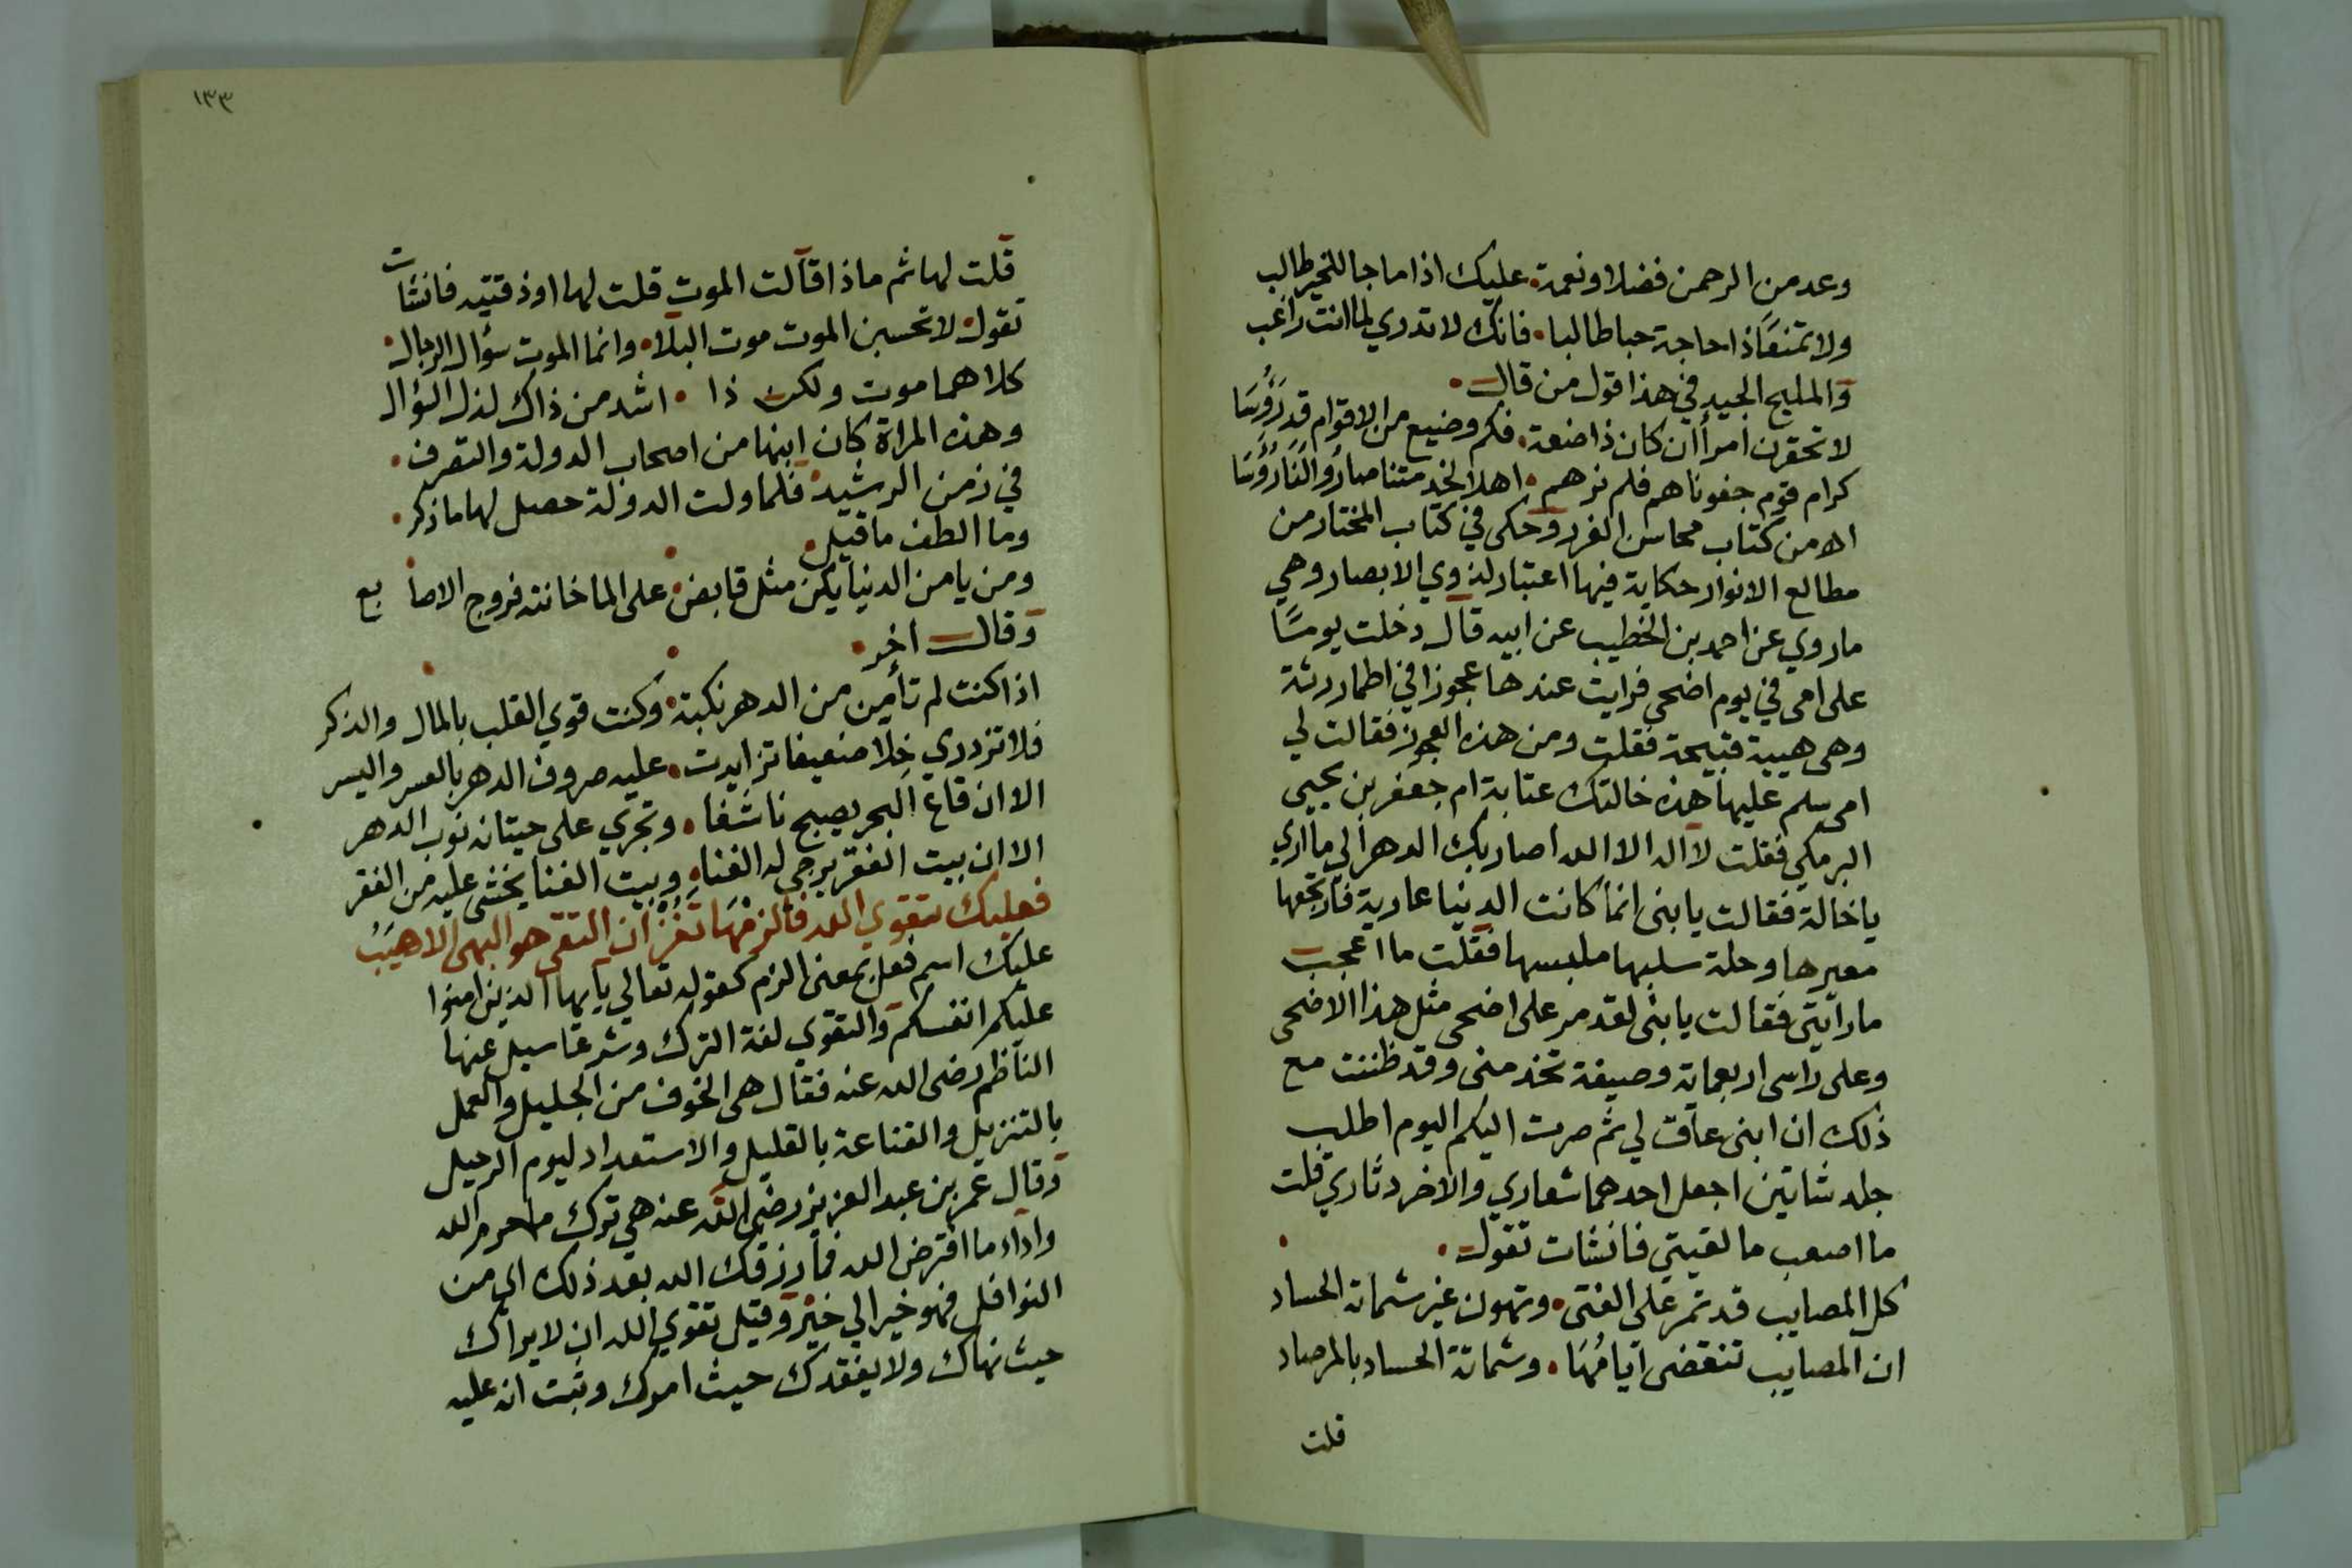 وعد من الرحمن فضلا ونعمة • عليك اذا ما جا للخير طالب
ولا تمنعَّا ذا حاجة جبا طالبا • فانك لا تدري لما انت راغب
والمليح الجيد في هذا قول من قال •
لا تحقرن امرأ ان كان ذا ضعة • فكم وضيع من الاقوام قد رَؤُسَا
كرام قوم جفوناهم فلم نرهم • اهلا لخدمتنا صاروا لنا رؤسا
اه من كتاب محاسن الغرر وحكى في كتاب المختار من
مطالع الانوار حكاية فيها اعتبار لذوي الابصار وهي
ما روي عن احمد بن الخطيب عن ابيه قال دخلت يومًا
على امى في يوم اضحى فرايت عندها عجوزا في اطمار رثة
وهى هيية قبيحة فقلت ومن هذه العجوز فقالت لي
امى سلم عليها هذه خالتك عتابة ام جعفر بن يحيى
البرمكي فقلت لا اله الا الله اصار بك الدهر الي ما اري
يا خالة فقالت يا بنى انما كانت الدنيا عارية فارتجعها
معيرها وحلة سلبها ملبسها فقلت ما اعجب
ما رايتي فقالت يا بنى لقد مر على اضحى مثل هذا الاضحى
وعلى راسى اربعماية وصيفة تخدمنى وقد ظننت مع
ذلك ان ابنى عاق لي ثم صرت اليكم اليوم اطلب
جلد شاتين اجعل احدهما شعاري والاخر دثاري قلت
ما اصعب ما لقيتي فانشات تقول •
كل المصايب قد تمر على الفتى • وتهون غير شماتة الحساد
ان المصايب تنقضى ايامُهَا • وشماتة الحساد بالمرصاد
قلت
١٣٣
قلت لها ثم ماذا قالت الموت قلت لها اوذقتيه فانشات
تقول • لا تحسبن الموت موت البلا • وانما الموت سؤال الرجال •
كلاهما موت ولكن ذا • اشد من ذاك لذل السؤال
وهذه المراة كان ابنها من اصحاب الدولة والتصرف •
في زمن الرشيد فلما ولت الدولة حصل لها ما ذكر •
وما الطف ما قيل •
ومن يا من الدنيا يكن مثل قابض • على الما خانته فروج الاصابع
وقال اخر •
اذا كنت لم تأمن من الدهر نكبة • وكنت قوي القلب بالمال والذكر
فلا تزدري خلا ضعيفا تزايدت • عليه صروف الدهر بالعسر واليسر
الا ان قاع البحر يصبح ناشفا • وتجري على حيتانه نوب الدهر
الا ان بيت الفقر يرجي له الغنا • وبيت الغنا يخشى عليه من الفقر
فعليك بتقوي الله فالزمْهَا تَفُزْ ان التقى هو البهى الاهيَبُ
عليك اسم فعل بمعنى الزم كقوله تعالي يا يها الذين امنوا
عليكم انفسكم والتقوي لغة الترك وشرعا سيل عنها
الناظم رضى الله عنه فقال هى الخوف من الجليل والعمل
بالتنزيل والقناعة بالقليل والاستعداد ليوم الرحيل
وقال عمر بن عبد العزيز رضى الله عنه هي ترك ما حرم الله
واداء ما افترض الله فما رزقك الله بعد ذلك اى من
النوافل فهو خير الي خير وقيل تقوي الله ان لا يراك
حيث نهاك ولا يفقدك حيث امرك وثبت انه عليه